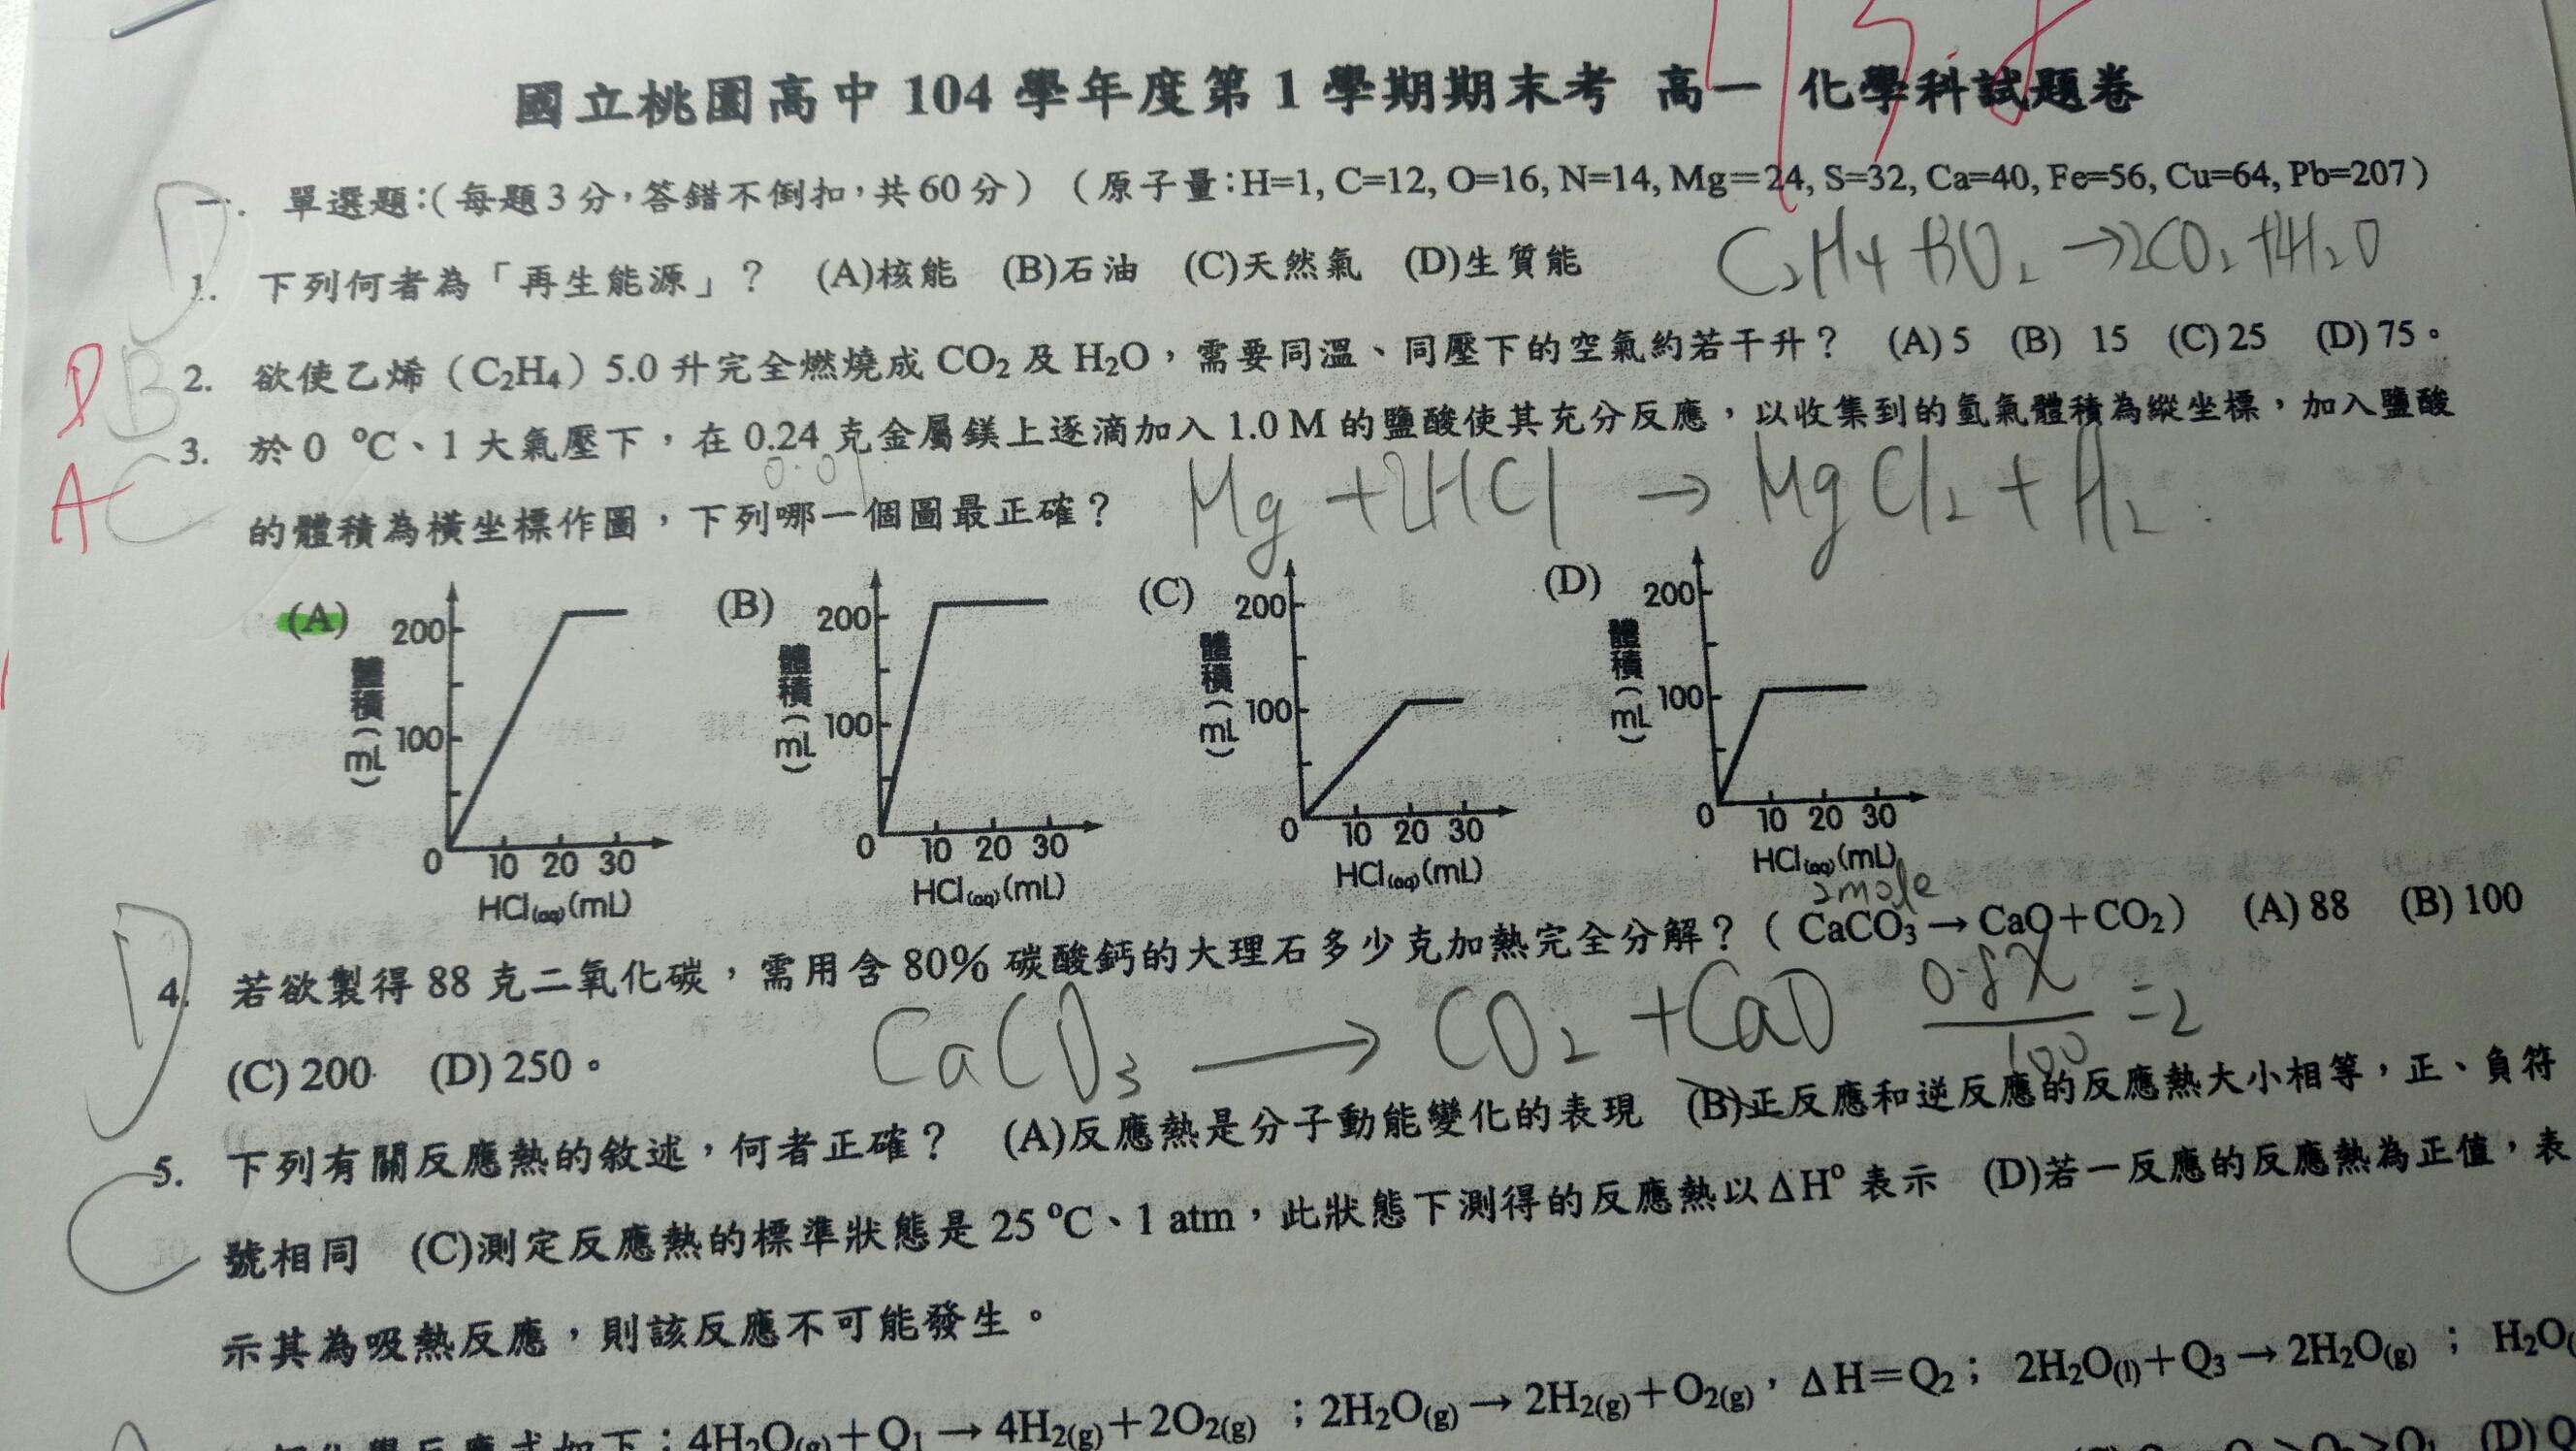 國立桃園高中 104 學年度第 1 學期期末考 高一 化學科試題卷
一. 單選題:(每題3分,答錯不倒扣,共60分) (原子量:H=1, C=12, O=16, N=14, Mg=24, S=32, Ca=40, Fe=56, Cu=64, Pb=207)
D 1. 下列何者為「再生能源」? (A)核能 (B)石油 (C)天然氣 (D)生質能
C₂H₄ + 3O₂ → 2CO₂ + H₂O
D B 2. 欲使乙烯(C₂H₄)5.0 升完全燃燒成 CO₂ 及 H₂O,需要同溫、同壓下的空氣約若干升? (A) 5 (B) 15 (C) 25 (D) 75。
A C 3. 於 0 ℃、1 大氣壓下,在 0.24 克金屬鎂上逐滴加入 1.0 M 的鹽酸使其充分反應,以收集到的氫氣體積為縱坐標,加入鹽酸
0.01
的體積為橫坐標作圖,下列哪一個圖最正確?
Mg + 2HCl → MgCl₂ + H₂
(A) 200 100 體積(mL) 0 10 20 30 HCl(aq)(mL)
(B) 200 100 體積(mL) 0 10 20 30 HCl(aq)(mL)
(C) 200 100 體積(mL) 0 10 20 30 HCl(aq)(mL)
(D) 200 100 體積(mL) 0 10 20 30 HCl(aq)(mL)
2mole
D 4. 若欲製得 88 克二氧化碳,需用含 80% 碳酸鈣的大理石多少克加熱完全分解?( CaCO₃ → CaO+CO₂) (A) 88 (B) 100
(C) 200 (D) 250。
CaCO₃ → CO₂ + CaO
0.8X/100 = 2
C 5. 下列有關反應熱的敘述,何者正確? (A)反應熱是分子動能變化的表現 (B)正反應和逆反應的反應熱大小相等,正、負符
號相同 (C)測定反應熱的標準狀態是 25 ℃、1 atm,此狀態下測得的反應熱以 ΔH° 表示 (D)若一反應的反應熱為正值,表
示其為吸熱反應,則該反應不可能發生。
化學反應式如下:4H₂O(g)+Q₁ → 4H₂(g)+2O₂(g) ;2H₂O(g) → 2H₂(g)+O₂(g),ΔH=Q₂; 2H₂O(l)+Q₃ → 2H₂O(g) ; H₂O(